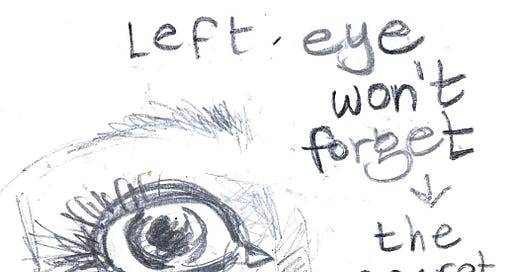 Left eye
won't
forget
the